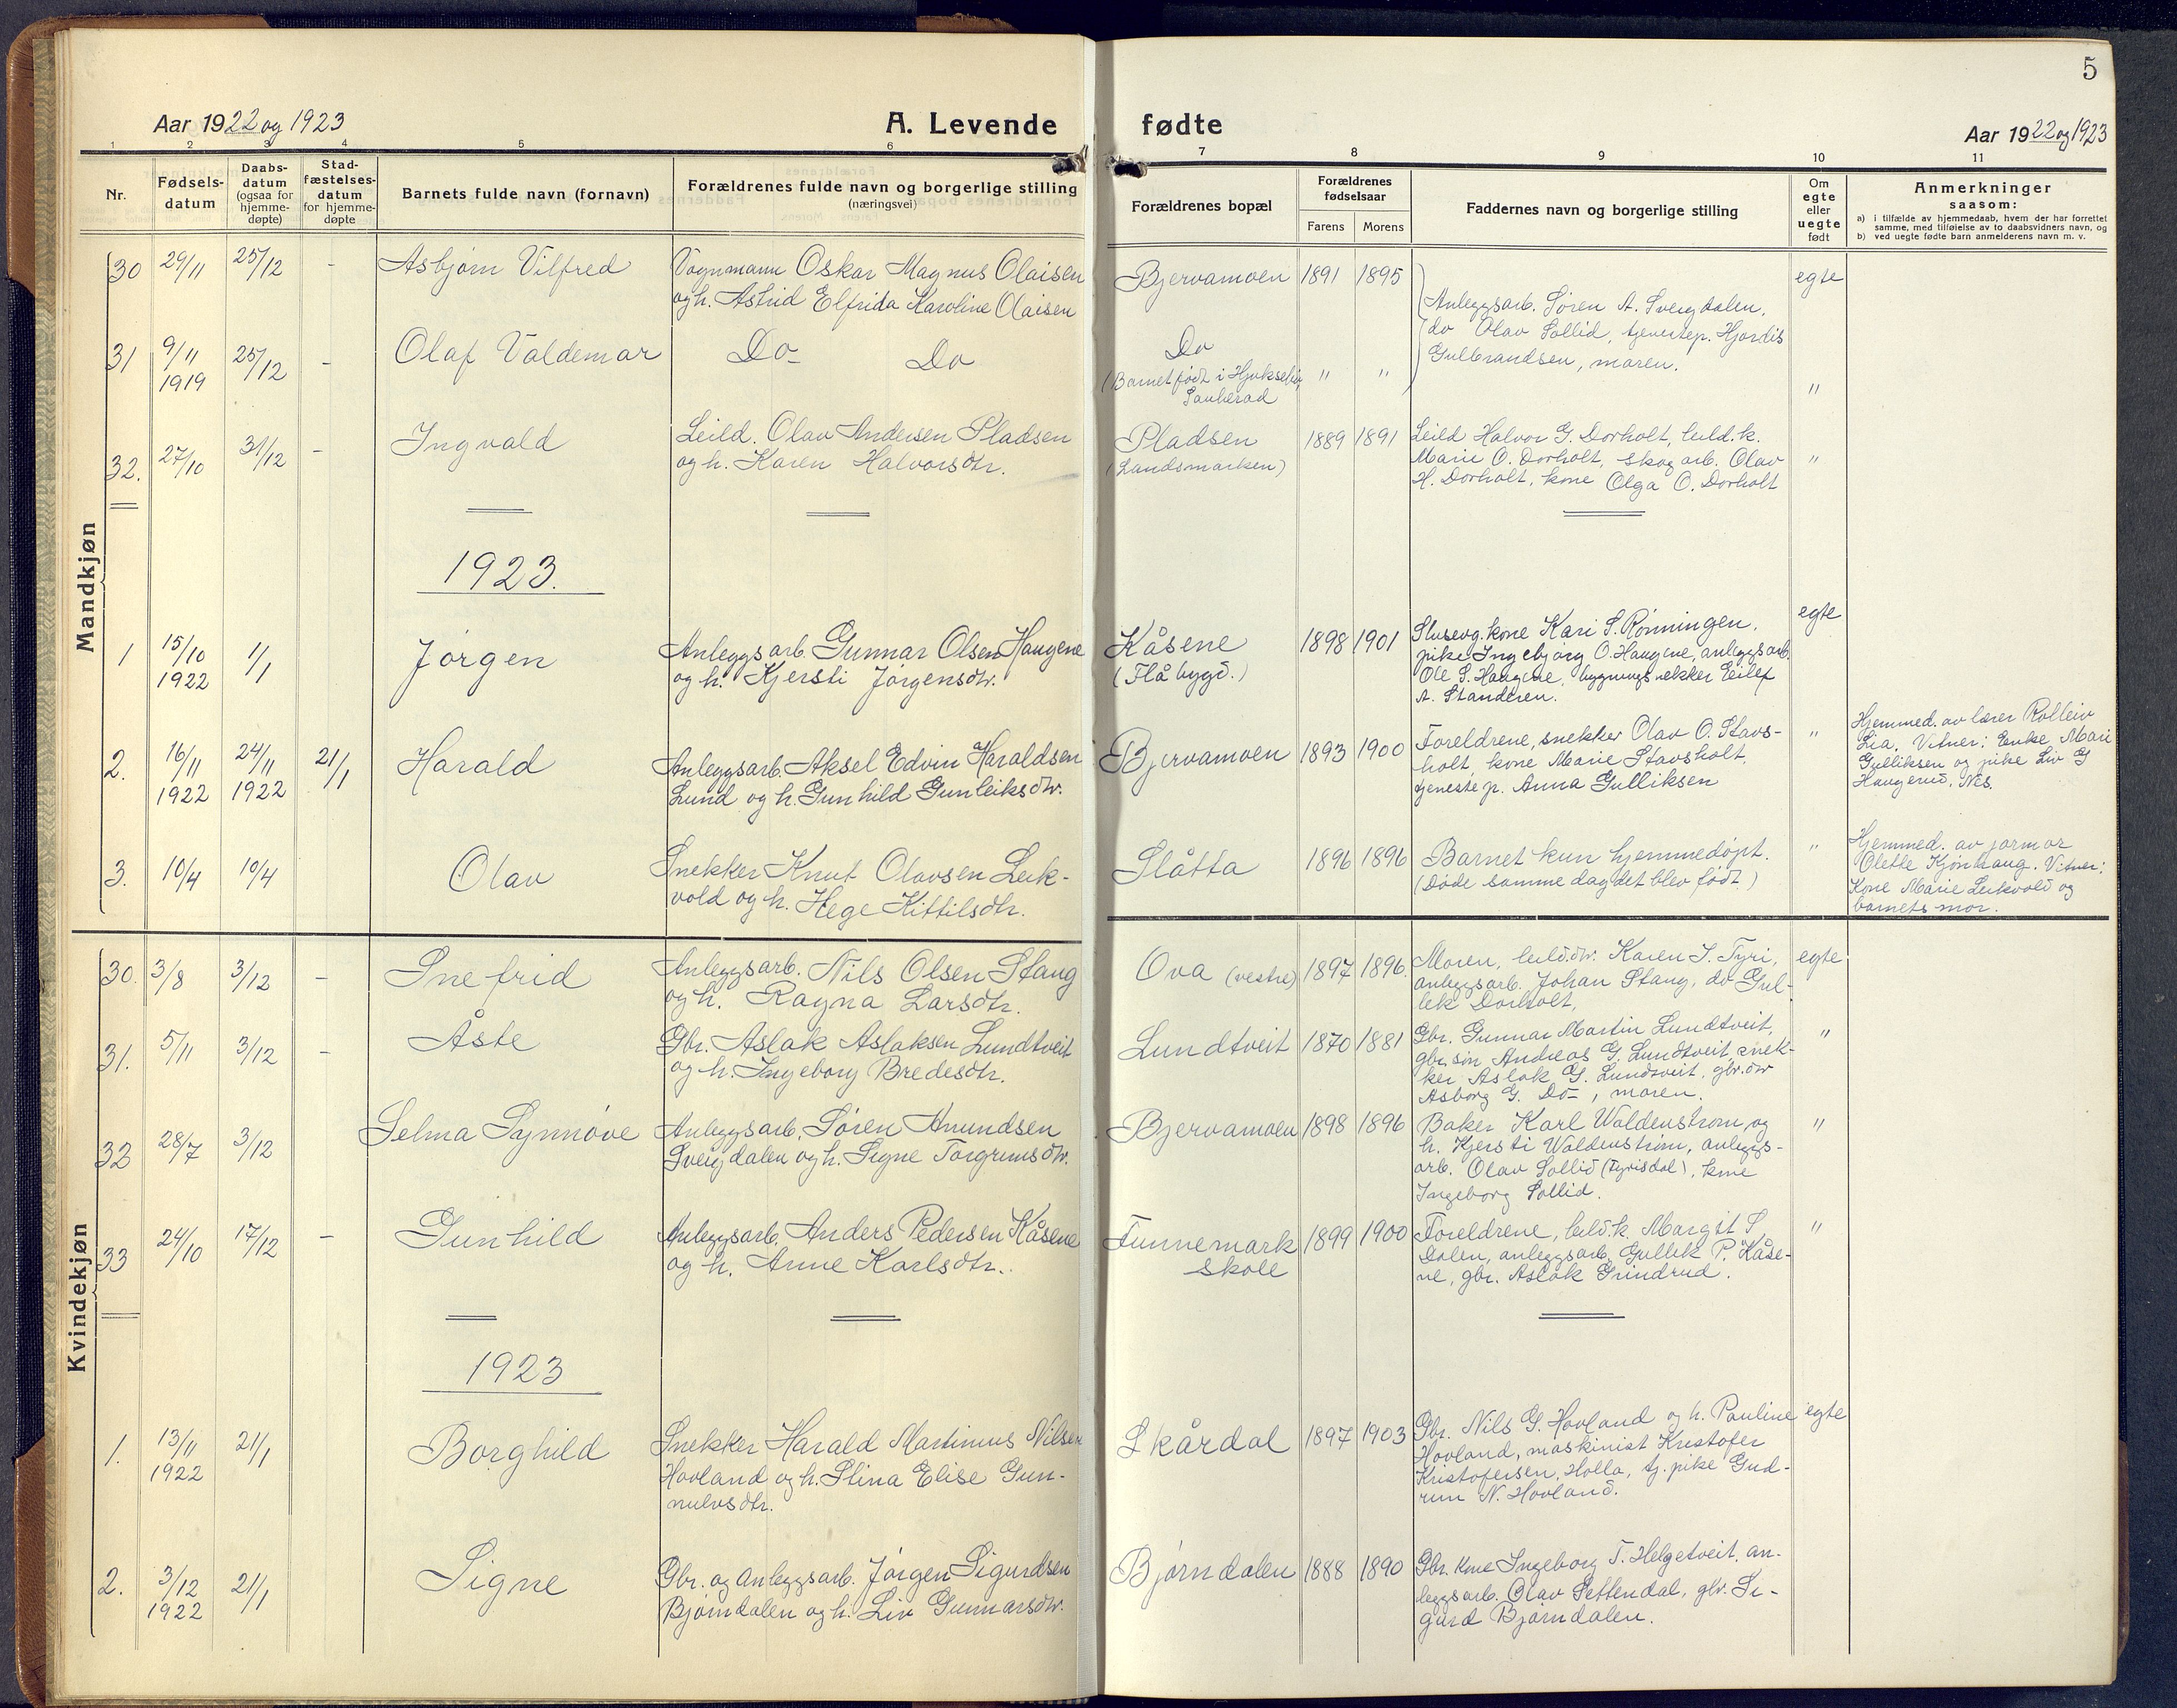 5
Aar 1922 og 1923
A. Levende
fødte
Aar 1922 og 1923
1 2 3 4 5 6 7 8 9 10 11
Nr.
Fødsels-
datum
Daabs-
datum
(ogsaa for
hjemme-
døpte)
Stad-
fæstelses-
datum
for hjemme-
døpte
Barnets fulde navn (fornavn)
Forældrenes fulde navn og borgerlige stilling
(næringsvei)
Forældrenes bopæl
Forældrenes
fødselsaar
Farens Morens
Faddernes navn og borgerlige stilling
Om
egte
eller
uegte
født
Anmerkninger
saasom:
a) i tilfælde av hjemmedaab, hvem der har forrettet
samme, med tilføielse av to daabsvidners navn, og
b) ved uegte fødte barn anmelderens navn m. v.
Mandkjøn
30 29/11 25/12 - Asbjørn Vilfred
Vognmann Oskar Magnus Olaisen
og h. Astrid Elfrida Karoline Olaisen
Bjervamoen 1891 1895
Anleggsarb. Søren A. Sveigdalen,
do Olav Sollid, tjenestep. Hjørdis
Gulbrandsen, moren.
egte
31 9/11 1919 25/12 - Olaf Valdemar
Do- Do
Do
(Barnet født i Hjuksebø,
Sauherad
" "
"
32. 27/10 31/12 - Ingvald
Leild. Olav Andersen Pladsen
og h. Karen Halvorsdtr.
Pladsen
(Landsmarken)
1889 1891
Leild Halvor G. Dorholt, leild. k.
Marie O. Dorholt, skogarb. Olav
H. Dorholt, kone Olga O. Dorholt
"
1923.
1 15/10 1922 1/1 Jørgen
Anleggsarb. Gunnar Olsen Haugene
og h. Kjersti Jørgensdtr.
Kåsene
(Flåbygd.)
1898 1901
Slusevg. kone Kari S. Rønningen,
pike Ingebjørg O. Haugene, anleggsarb.
Ole S. Haugene, bygningsnekker Eilef
A. Standeren.
egte
2. 16/11 1922 24/11 1922 21/1 Harald
Anleggsarb. Aksel Edvin Haraldsen
Lund og h. Gunhild Gunleiksdtr.
Bjervamoen 1893 1900
Foreldrene, snekker Olav O. Stavs-
holt, kone Marie Stavsholt,
tjeneste p. Anna Gulliksen
"
Hjemmed. av lærer Rolleiv
Lia. Vitner: Enke Mari
Gulliksen og pike Liv G
Haugerud, Nes.
3. 10/4 10/4 Olav
Snekker Knut Olavsen Leik-
vold og h. Hege Kittilsdtr.
Slåtta 1896 1896
Barnet kun hjemmedøpt.
(Døde samme dag det blev født)
"
Hjemmed. av jormor
Olette Kjønhaug. Vitner:
Kone Marie Leikvold og
barnets mor.
Kvindekjøn
30. 3/8 3/12 - Snefrid
Anleggsarb. Nils Olsen Stang
og h. Ragna Larsdtr.
Ova (vestre) 1897 1896.
Moren, leild.dtr. Karen J. Tyri,
anleggsarb. Johan Stang, do Gul-
lek Dorholt,
egte
31. 5/11 3/12 - Åste
Gbr. Aslak Aslaksen Lundtveit
og h. Ingeborg Bredesdtr.
Lundtveit 1870 1881
Gbr. Gunnar Martin Lundtveit,
gbr. søn Andreas G. Lundtveit, snek-
ker Aslak G. Lundtveit, gbr. dtr
Asborg G. Do-, moren.
"
32 28/7 3/12 Selma Synnøve
Anleggsarb. Søren Amundsen
Sveigdalen og h. Signe Torgrimsdtr.
Bjervamoen 1898 1896
Baker Karl Waldenstrøm og
h. Kjersti Waldenstrøm, anleggs-
arb. Olav Sollid (Tyrisdal), kone
Ingeborg Sollid.
"
33 24/10 17/12 - Gunhild
Anleggsarb. Anders Pedersen Kåsene
og h. Anne Karlsdtr.
Funnemark
skole
1899 1900
Foreldrene, leild.k. Margit S
Dalen, anleggsarb. Gullek P. Kåse-
ne, gbr. Aslak Grindrud.
"
1923
1. 13/11 1922 21/1 Borghild
Snekker Harald Martinus Nilsen
Hovland og h. Stina Elise Gun-
nulvsdtr.
Skårdal 1897 1903
Gbr. Nils G. Hovland og h. Pauline
Hovland, maskinist Kristofer
Kristofersen, Holla, tj. pike Gud-
run N. Hovland.
egte
2. 3/12 1922 21/1 Signe
Gbr. og anleggsarb. Jørgen Sigurdsen
Bjørndalen og h. Liv Gunnarsdtr.
Bjørndalen 1888 1890
Gbr. kone Ingeborg T. Helgetveit, an-
leggsarb. Olav Settendal, gbr. Si-
gurd Bjørndalen.